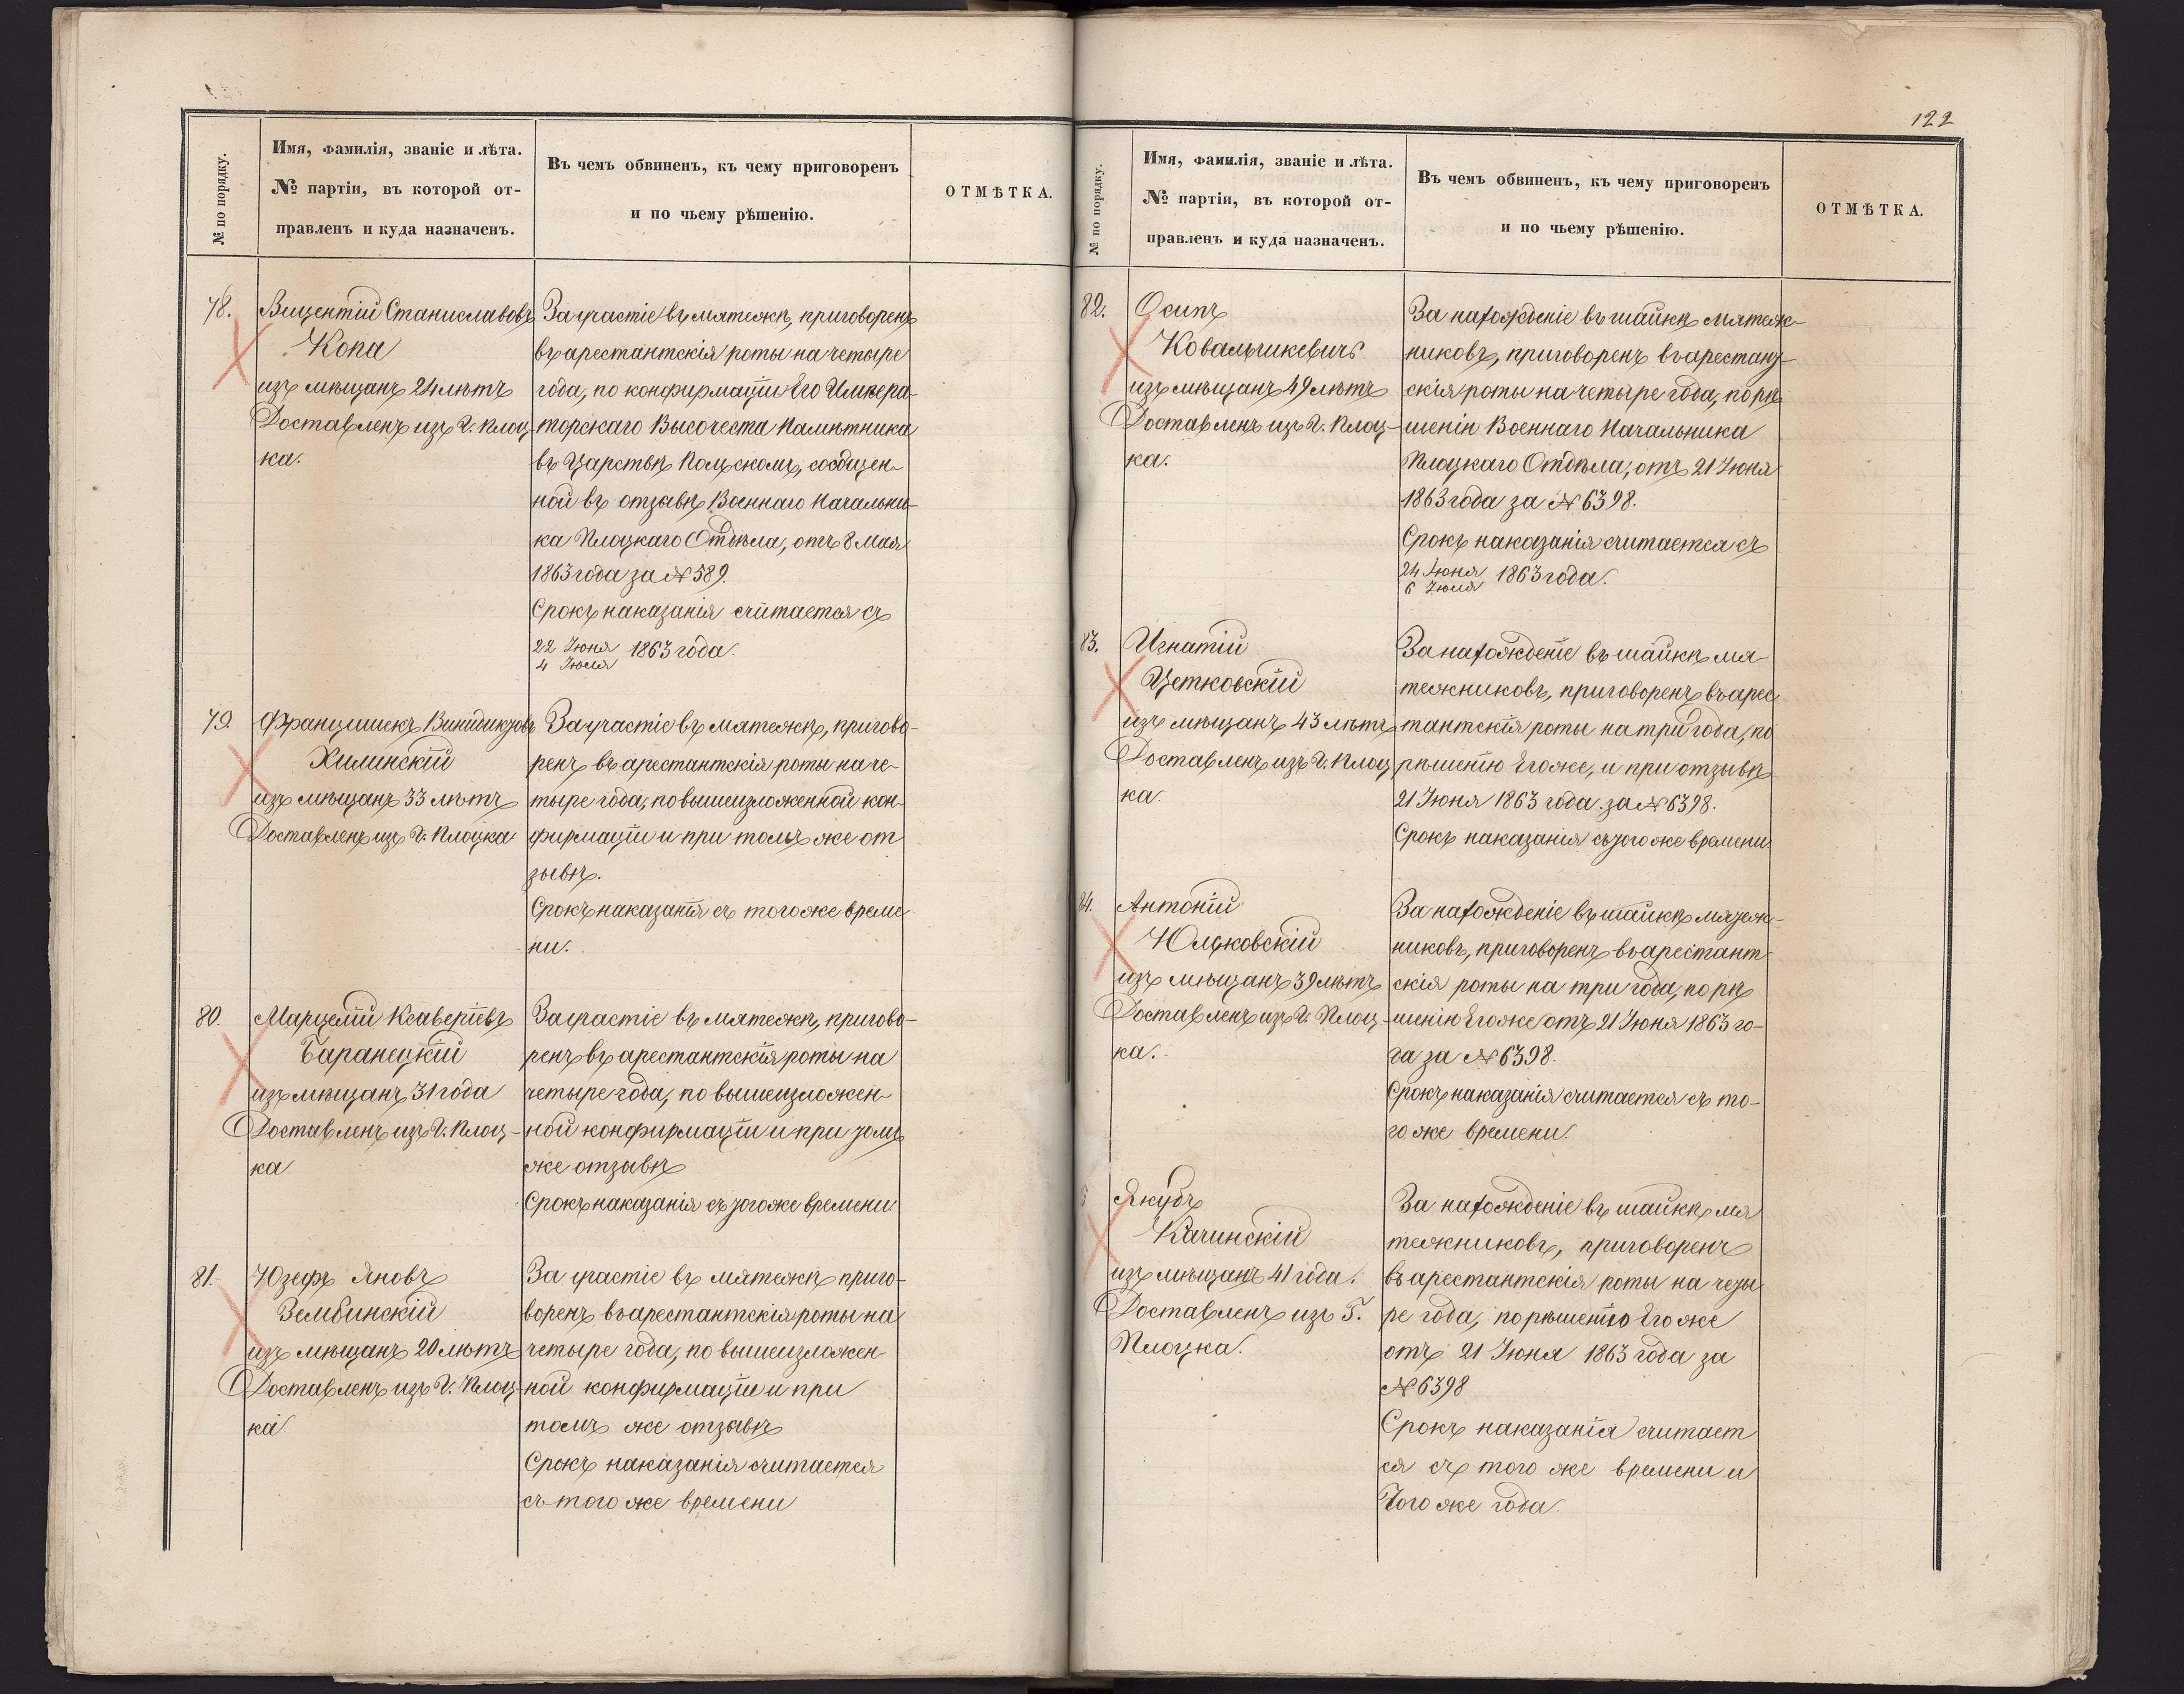 № по порядку.
Имя, фамилія, званіе и лѣта.
№ партіи, въ которой от-
правленъ и куда назначенъ.
Въ чемъ обвиненъ, къ чему приговоренъ
и по чьему рѣшенію.
ОТМѢТКА.
78.
Вицентій Станиславовъ
Копа
изъ мѣщанъ 24 лѣтъ
Доставленъ изъ Г. Плоц-
ка.
За участіе въ мятежѣ, приговоренъ
въ арестантскія роты на четыре
года, по конфирмаціи Его Импера-
торскаго Высочества Намѣстника
въ Царствѣ Польскомъ, сообщен-
ной въ отзывѣ Военнаго Начальни-
ка Плоцкаго Отдѣла, отъ 8 Мая
1863 года за № 589.
Срокъ наказанія считается съ
22 Іюня
4 Іюля 1863 года.
79.
Францишекъ
Хилинскій
изъ мѣщанъ 33 лѣтъ
Доставленъ изъ Г. Плоцка
За участіе въ мятежѣ, пригово-
ренъ въ арестантскія роты на че-
тыре года, по вышеизложенной кон-
фирмаціи и при томъ же от
зывѣ.
Срокъ наказанія съ того же време-
ни.
80.
Марцелій Ксаверіевъ
Баранецкій
изъ мѣщанъ 31 года
Доставленъ изъ Г. Плоц-
ка
За участіе въ мятежѣ, пригово-
ренъ въ арестантскія роты на
четыре года, по вышеизложен-
ной конфирмаціи и при томъ
же отзывѣ
Срокъ наказанія съ того же времени.
81.
Юзефъ Яновъ
Зембинскій
изъ мѣщанъ 20 лѣтъ
Доставленъ изъ Г. Плоц-
ка.
За участіе въ мятежѣ приго-
воренъ въ арестантскія роты на
четыре года, по вышеизложен
ной конфирмаціи и при
томъ же отзывѣ
Срокъ наказанія считается
съ того же времени
122
№ по порядку.
Имя, фамилія, званіе и лѣта.
№ партіи, въ которой от-
правленъ и куда назначенъ.
Въ чемъ обвиненъ, къ чему приговоренъ
и по чьему рѣшенію.
ОТМѢТКА.
82.
Осипъ
Ковальчикевичъ
изъ мѣщанъ 49 лѣтъ
Доставленъ изъ Г. Плоц-
ка.
За нахожденіе въ шайкѣ мятеж-
никовъ, приговоренъ въ арестант-
скія роты на четыре года, по рѣ
шенію Военнаго Начальника
Плоцкаго Отдѣла, отъ 21 Іюня
1863 года за № 6398.
Срокъ наказанія считается съ
24 Іюня
6 Іюля 1863 года.
83.
Игнатій
Цетковскій
изъ мѣщанъ 43 лѣтъ
Доставленъ изъ Г. Плоц
ка.
За нахожденіе въ шайкѣ мя-
тежниковъ, приговоренъ въ арес
тантскія роты на три года, по
рѣшенію Его же, и при отзывѣ
21 Іюня 1863 года за № 6398.
Срокъ наказанія съ того же времени
84.
Антоній
Юльковскій
изъ мѣщанъ 39 лѣтъ
Доставленъ изъ Г. Плоц-
ка.
За нахожденіе въ шайкѣ мятеж-
никовъ, приговоренъ въ арестант
скія роты на три года, по рѣ
шенію Его же отъ 21 Іюня 1863 го-
га за № 6398.
Срокъ наказанія считается съ то-
го же времени.
5
Якубъ
Качинскій
изъ мѣщанъ 41 года.
Доставленъ изъ Г.
Плоцка.
За нахожденіе въ шайкѣ мя
тежниковъ, приговоренъ
въ арестантскія роты на четы
ре года, по рѣшенію Его же
отъ 21 Іюня 1863 года за
№ 6398
Срокъ наказанія считает
ся съ того же времени и
того же года.